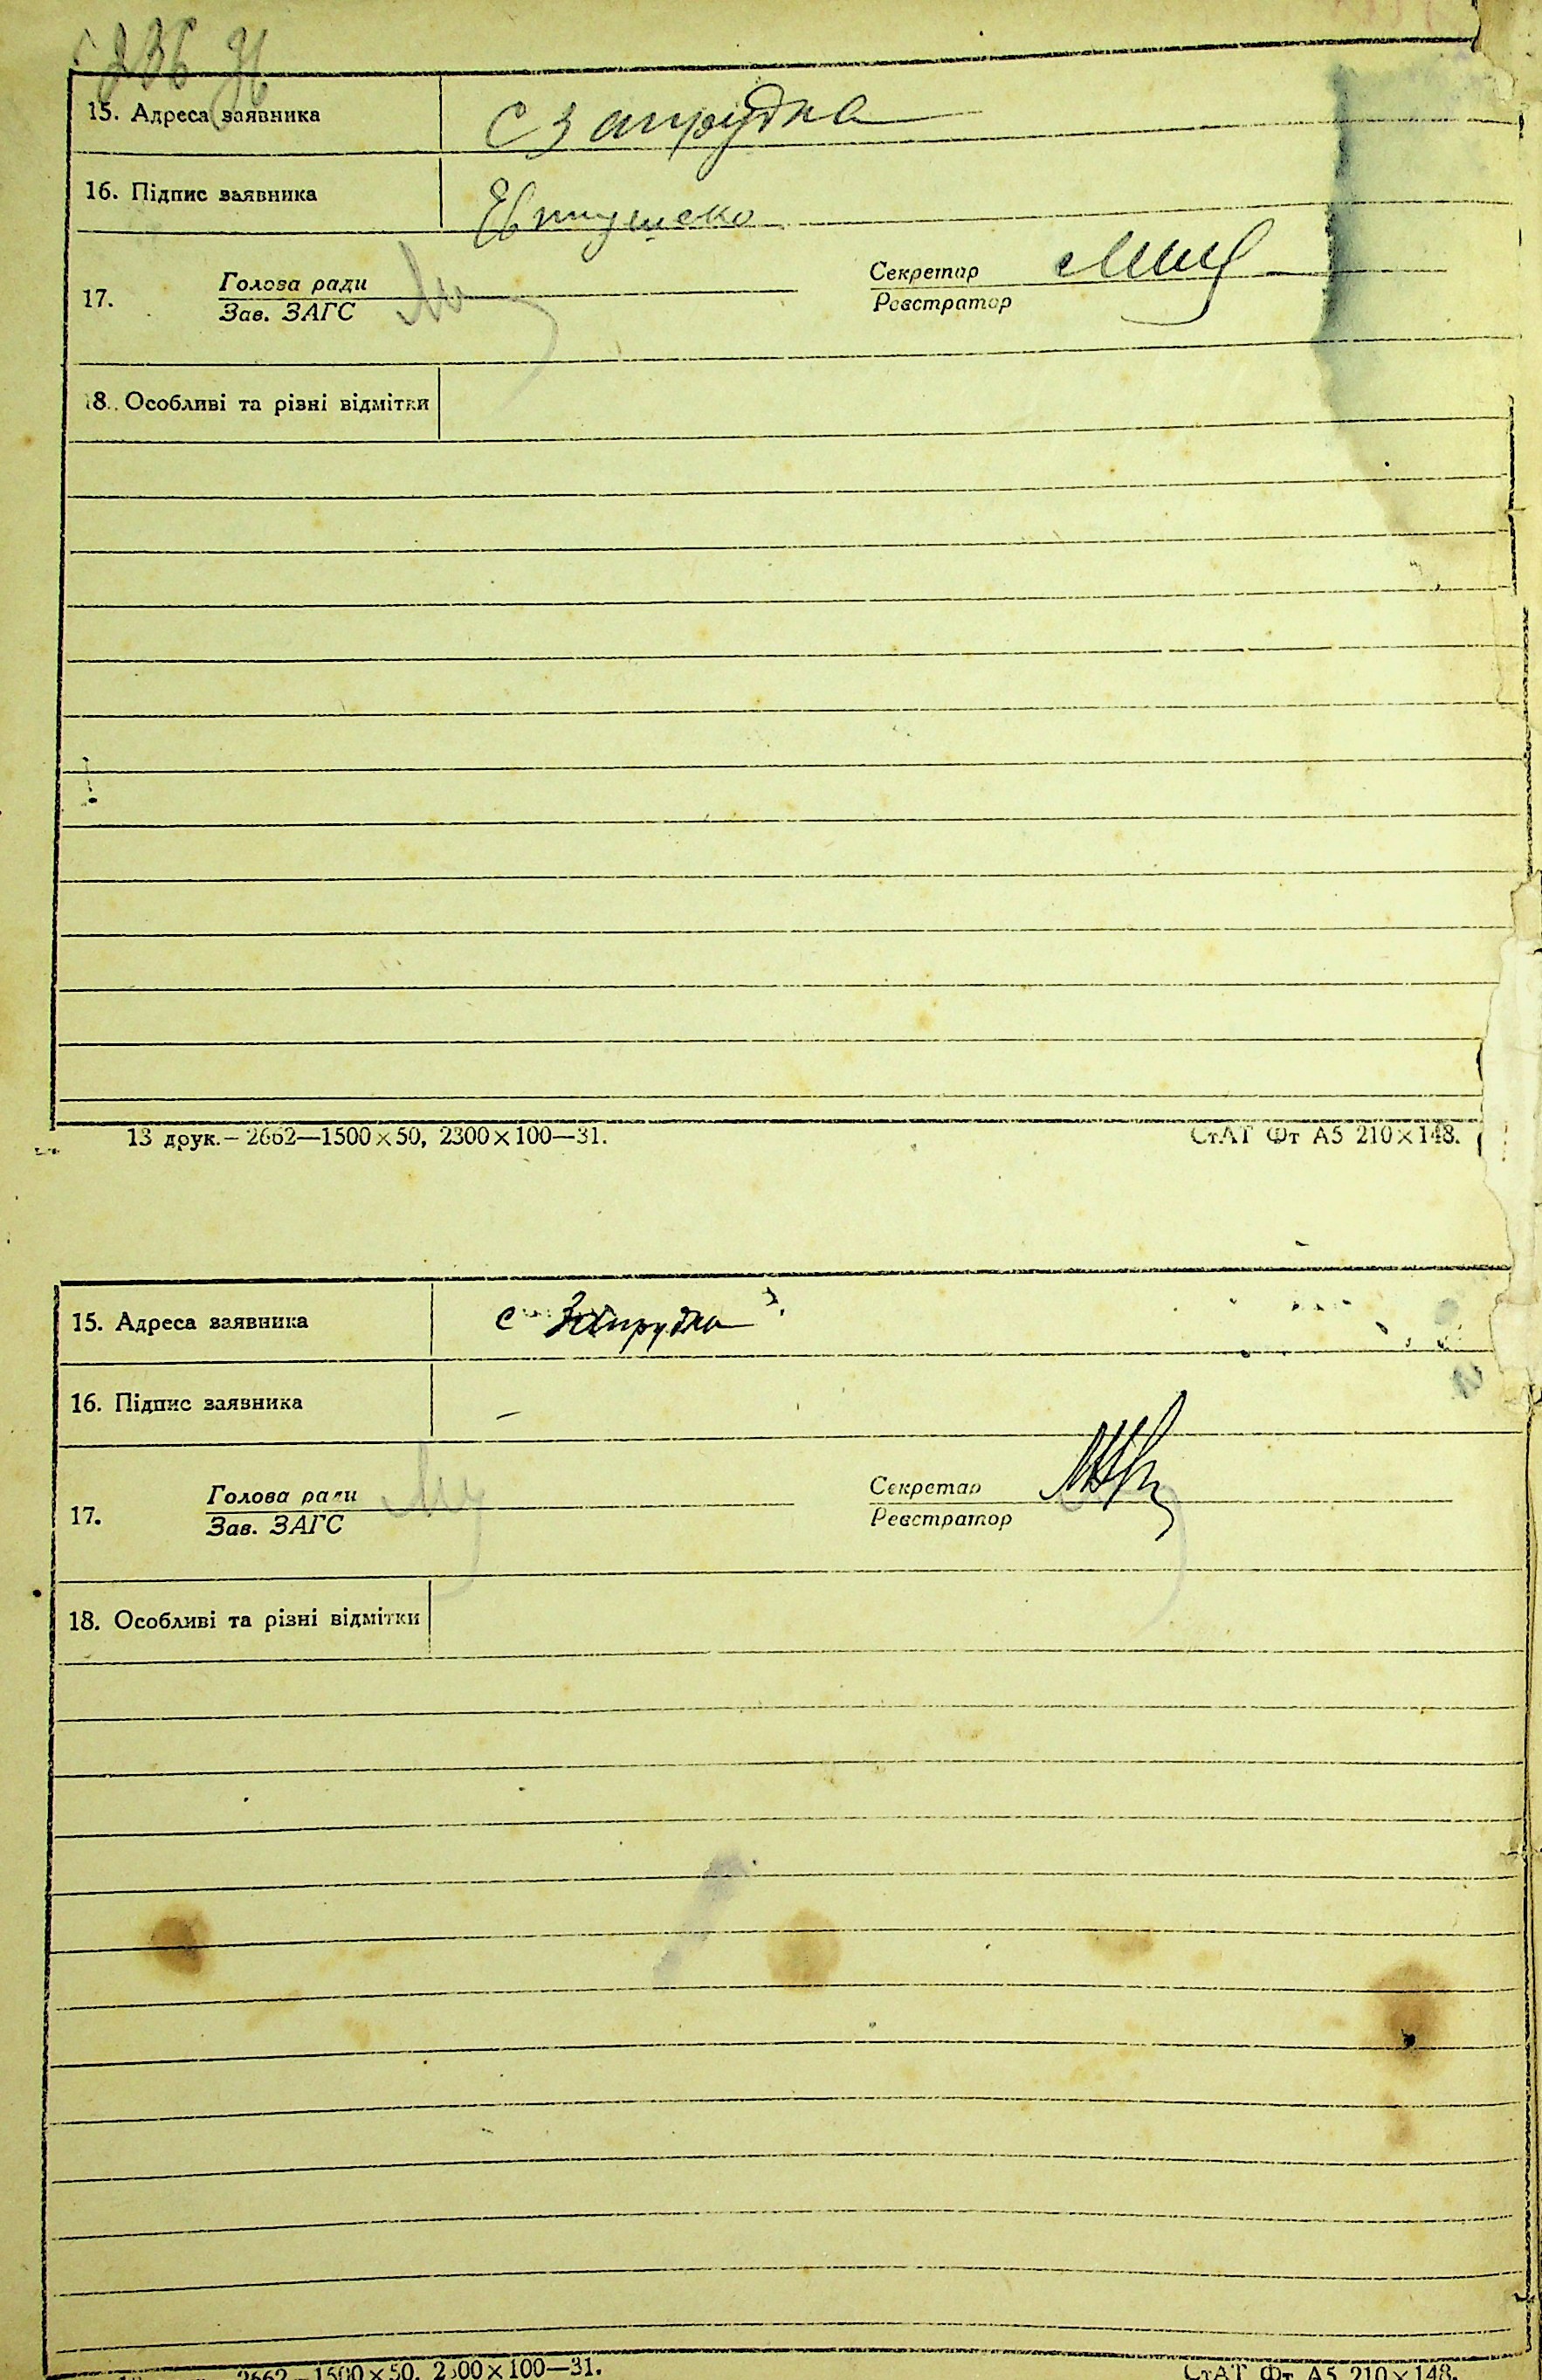 15. Адреса заявника с Запрудка
16. Підпис заявника
17. Голова ради Секретар
Зав. ЗАГС Реєстратор
18. Особливі та різні відмітки
13 друк.—2662—1500×50, 2300×100—31. СтАТ Фт А5 210×148.
15. Адреса заявника с Запрудка
16. Підпис заявника —
17. Голова ради Секретар
Зав. ЗАГС Реєстратор
18. Особливі та різні відмітки
2662—1500×50, 2300×100—31. СтАТ Фт А5 210×148.